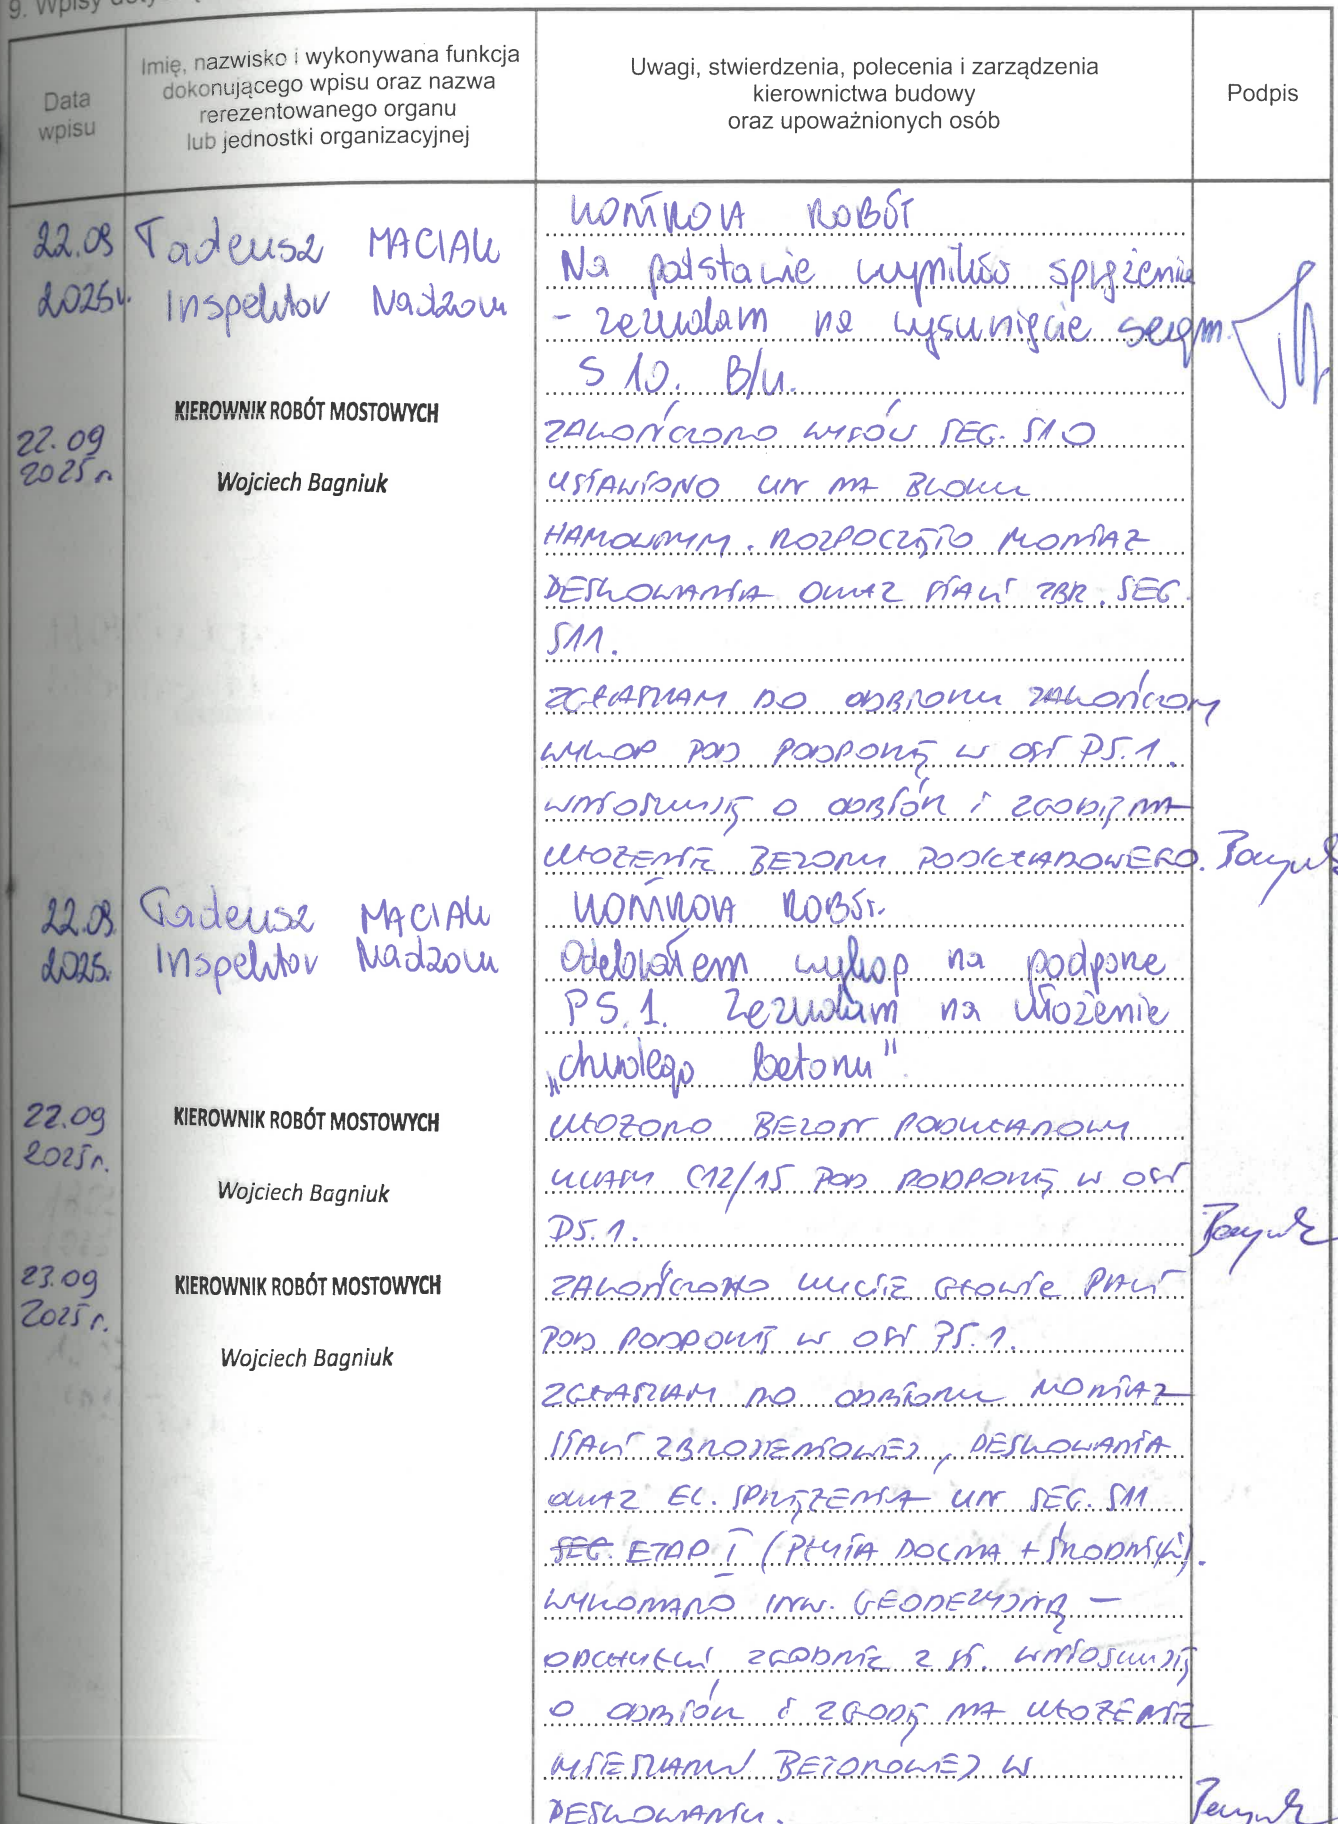 9. Wpisy
Data
wpisu
Imię, nazwisko i wykonywana funkcja
dokonującego wpisu oraz nazwa
rerezentowanego organu
lub jednostki organizacyjnej
Uwagi, stwierdzenia, polecenia i zarządzenia
kierownictwa budowy
oraz upoważnionych osób
Podpis
22.09
2025r.
Tadeusz MACIAK
Inspektor Nadzoru
KONTROLA ROBÓT
Na podstawie wyników sprężenia
- zezwalam na wysunięcie segm.
S 10. B/U.
22.09
2025r.
KIEROWNIK ROBÓT MOSTOWYCH
Wojciech Bagniuk
ZAKOŃCZONO WYSÓW SEG. S10
USTAWIONO UN NA BLOKU
HAMOWNYM. ROZPOCZĘTO MONTAŻ
DESKOWANIA ORAZ STALI ZBR. SEG.
S11.
ZGŁASZAM DO ODBIORU ZAKOŃCZONY
WYKOP POD PODPORĘ W OSI P5.1.
WNIOSKUJĘ O ODBIÓR I ZGODĘ NA
UŁOŻENIE BETONU PODKŁADOWEGO.
22.09
2025.
Tadeusz MACIAK
Inspektor Nadzoru
KONTROLA ROBÓT.
Odebrałem wykop na podporę
P5.1. Zezwalam na ułożenie
„chudego betonu"
22.09
2025r.
KIEROWNIK ROBÓT MOSTOWYCH
Wojciech Bagniuk
UŁOŻONO BETON PODKŁADOWY
KLASY C12/15 POD PODPORĘ W OSI
P5.1.
23.09
2025r.
KIEROWNIK ROBÓT MOSTOWYCH
Wojciech Bagniuk
ZAKOŃCZONO KUCIE GŁOWIC PALI
POD PODPORĘ W OSI P5.1.
ZGŁASZAM DO ODBIORU MONTAŻ
STALI ZBROJENIOWEJ, DESKOWANIA
ORAZ EL. SPRĘŻENIA UN SEG. S11
SEG. ETAP I (PŁYTA DOLNA + ŚRODNIKI).
WYKONANO INW. GEODEZYJNĄ -
ODCHYŁKI ZGODNIE Z ST. WNIOSKUJĘ
O ODBIÓR I ZGODĘ NA UŁOŻENIE
MIESZANKI BETONOWEJ W
DESKOWANIU.